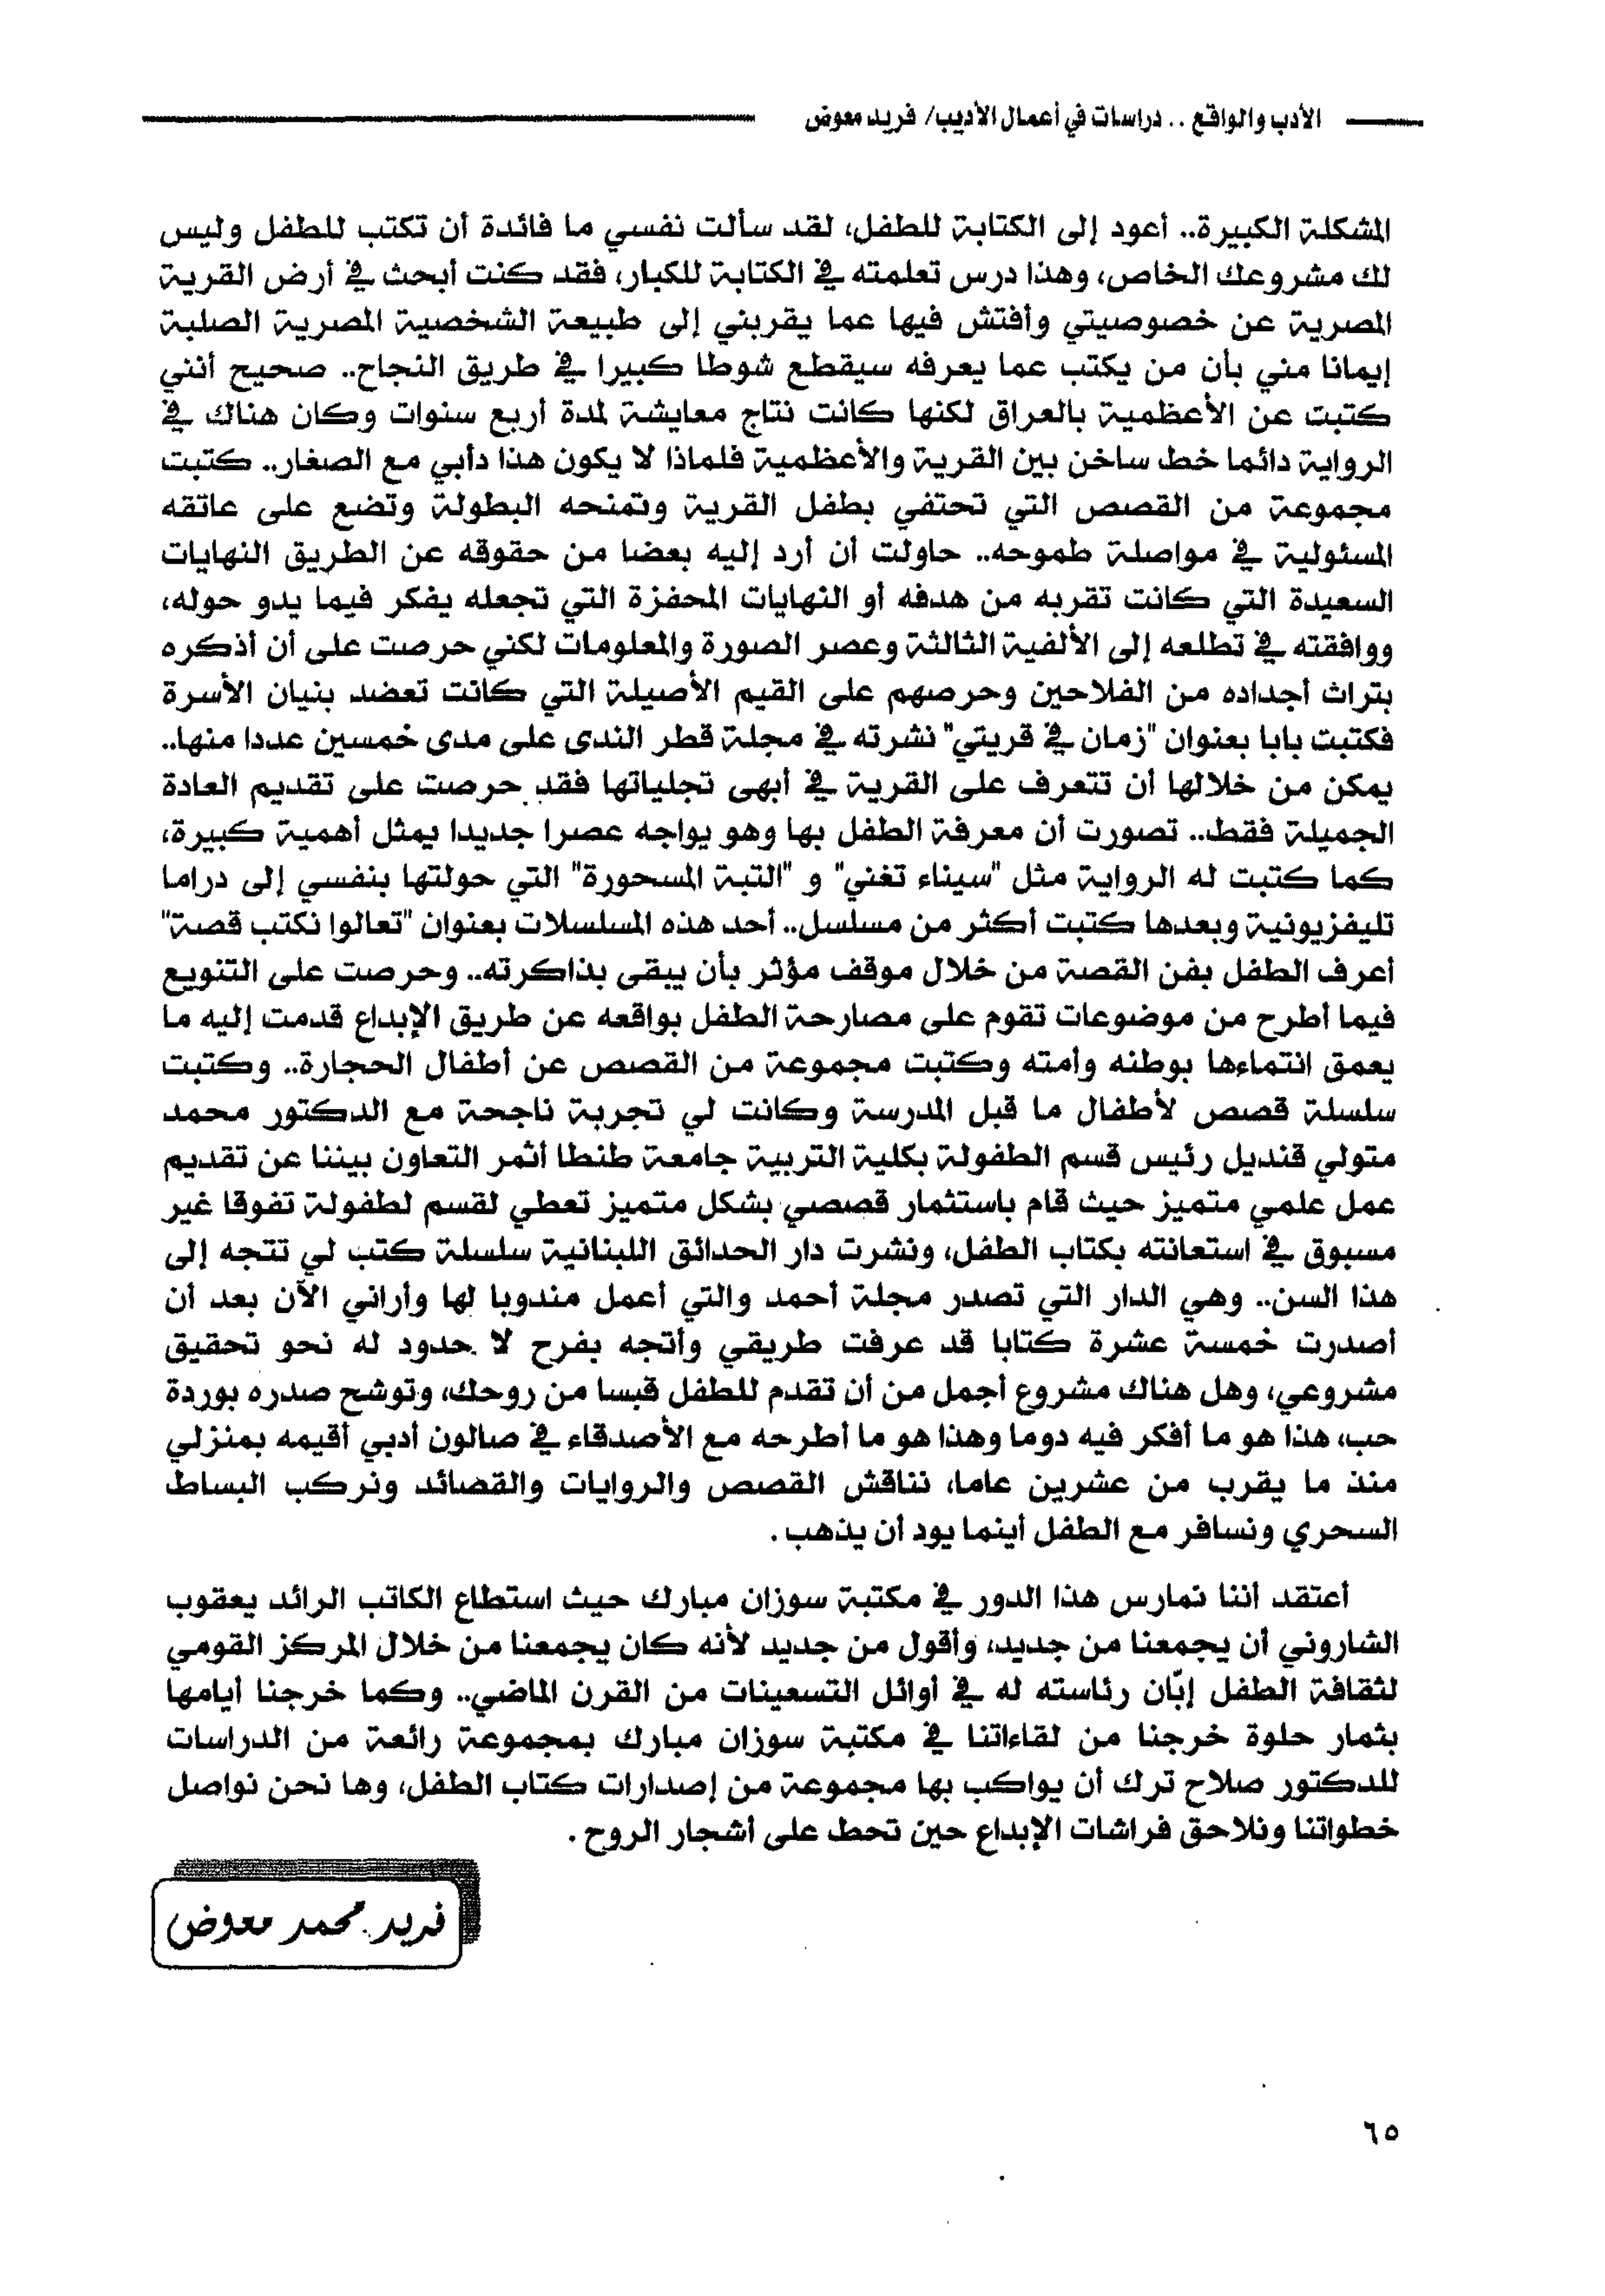 الأدب والواقع .. دراسات في أعمال الأديب/ فريد معوض
المشكلة الكبيرة.. أعود إلى الكتابة للطفل، لقد سألت نفسي ما فائدة أن تكتب للطفل وليس
لك مشروعك الخاص، وهذا درس تعلمته في الكتابة للكبار، فقد كنت أبحث في أرض القرية
المصرية عن خصوصيتي وأفتش فيها عما يقربني إلى طبيعة الشخصية المصرية الصلبة
إيمانا مني بأن من يكتب عما يعرفه سيقطع شوطا كبيرا في طريق النجاح.. صحيح أنني
كتبت عن الأعظمية بالعراق لكنها كانت نتاج معايشة لمدة أربع سنوات وكان هناك في
الرواية دائما خط ساخن بين القرية والأعظمية فلماذا لا يكون هذا دأبي مع الصغار.. كتبت
مجموعة من القصص التي تحتفي بطفل القرية وتمنحه البطولة وتضع على عاتقه
المسئولية في مواصلة طموحه.. حاولت أن أرد إليه بعضا من حقوقه عن الطريق النهايات
السعيدة التي كانت تقربه من هدفه أو النهايات المحفزة التي تجعله يفكر فيما يدو حوله،
ووافقته في تطلعه إلى الألفية الثالثة وعصر الصورة والمعلومات لكني حرصت على أن أذكره
بتراث أجداده من الفلاحين وحرصهم على القيم الأصيلة التي كانت تعضد بنيان الأسرة
فكتبت بابا بعنوان "زمان في قريتي" نشرته في مجلة قطر الندى على مدى خمسين عددا منها..
يمكن من خلالها أن تتعرف على القرية في أبهى تجلياتها فقد حرصت على تقديم العادة
الجميلة فقط.. تصورت أن معرفة الطفل بها وهو يواجه عصرا جديدا يمثل أهمية كبيرة،
كما كتبت له الرواية مثل "سيناء تغني" و "التبة المسحورة" التي حولتها بنفسي إلى دراما
تليفزيونية وبعدها كتبت أكثر من مسلسل.. أحد هذه المسلسلات بعنوان "تعالوا نكتب قصة"
أعرف الطفل بفن القصة من خلال موقف مؤثر بأن يبقى بذاكرته.. وحرصت على التنويع
فيما أطرح من موضوعات تقوم على مصارحة الطفل بواقعه عن طريق الإبداع قدمت إليه ما
يعمق انتماءها بوطنه وأمته وكتبت مجموعة من القصص عن أطفال الحجارة.. وكتبت
سلسلة قصص لأطفال ما قبل المدرسة وكانت لي تجربة ناجحة مع الدكتور محمد
متولي قنديل رئيس قسم الطفولة بكلية التربية جامعة طنطا أثمر التعاون بيننا عن تقديم
عمل علمي متميز حيث قام باستثمار قصصي بشكل متميز تعطي لقسم لطفولة تفوقا غير
مسبوق في استعانته بكتاب الطفل، ونشرت دار الحدائق اللبنانية سلسلة كتب لي تتجه إلى
هذا السن.. وهي الدار التي تصدر مجلة أحمد والتي أعمل مندوبا لها وأراني الآن بعد أن
أصدرت خمسة عشرة كتابا قد عرفت طريقي وأتجه بفرح لا حدود له نحو تحقيق
مشروعي، وهل هناك مشروع أجمل من أن تقدم للطفل قبسا من روحك، وتوشح صدره بوردة
حب، هذا هو ما أفكر فيه دوما وهذا هو ما أطرحه مع الأصدقاء في صالون أدبي أقيمه بمنزلي
منذ ما يقرب من عشرين عاما، نناقش القصص والروايات والقصائد ونركب البساط
السحري ونسافر مع الطفل أينما يود أن يذهب.
أعتقد أننا نمارس هذا الدور في مكتبة سوزان مبارك حيث استطاع الكاتب الرائد يعقوب
الشاروني أن يجمعنا من جديد، وأقول من جديد لأنه كان يجمعنا من خلال المركز القومي
لثقافة الطفل إبّان رئاسته له في أوائل التسعينات من القرن الماضي.. وكما خرجنا أيامها
بثمار حلوة خرجنا من لقاءاتنا في مكتبة سوزان مبارك بمجموعة رائعة من الدراسات
للدكتور صلاح ترك أن يواكب بها مجموعة من إصدارات كتاب الطفل، وها نحن نواصل
خطواتنا ونلاحق فراشات الإبداع حين تحط على أشجار الروح.
فريد محمد معوض
٦٥